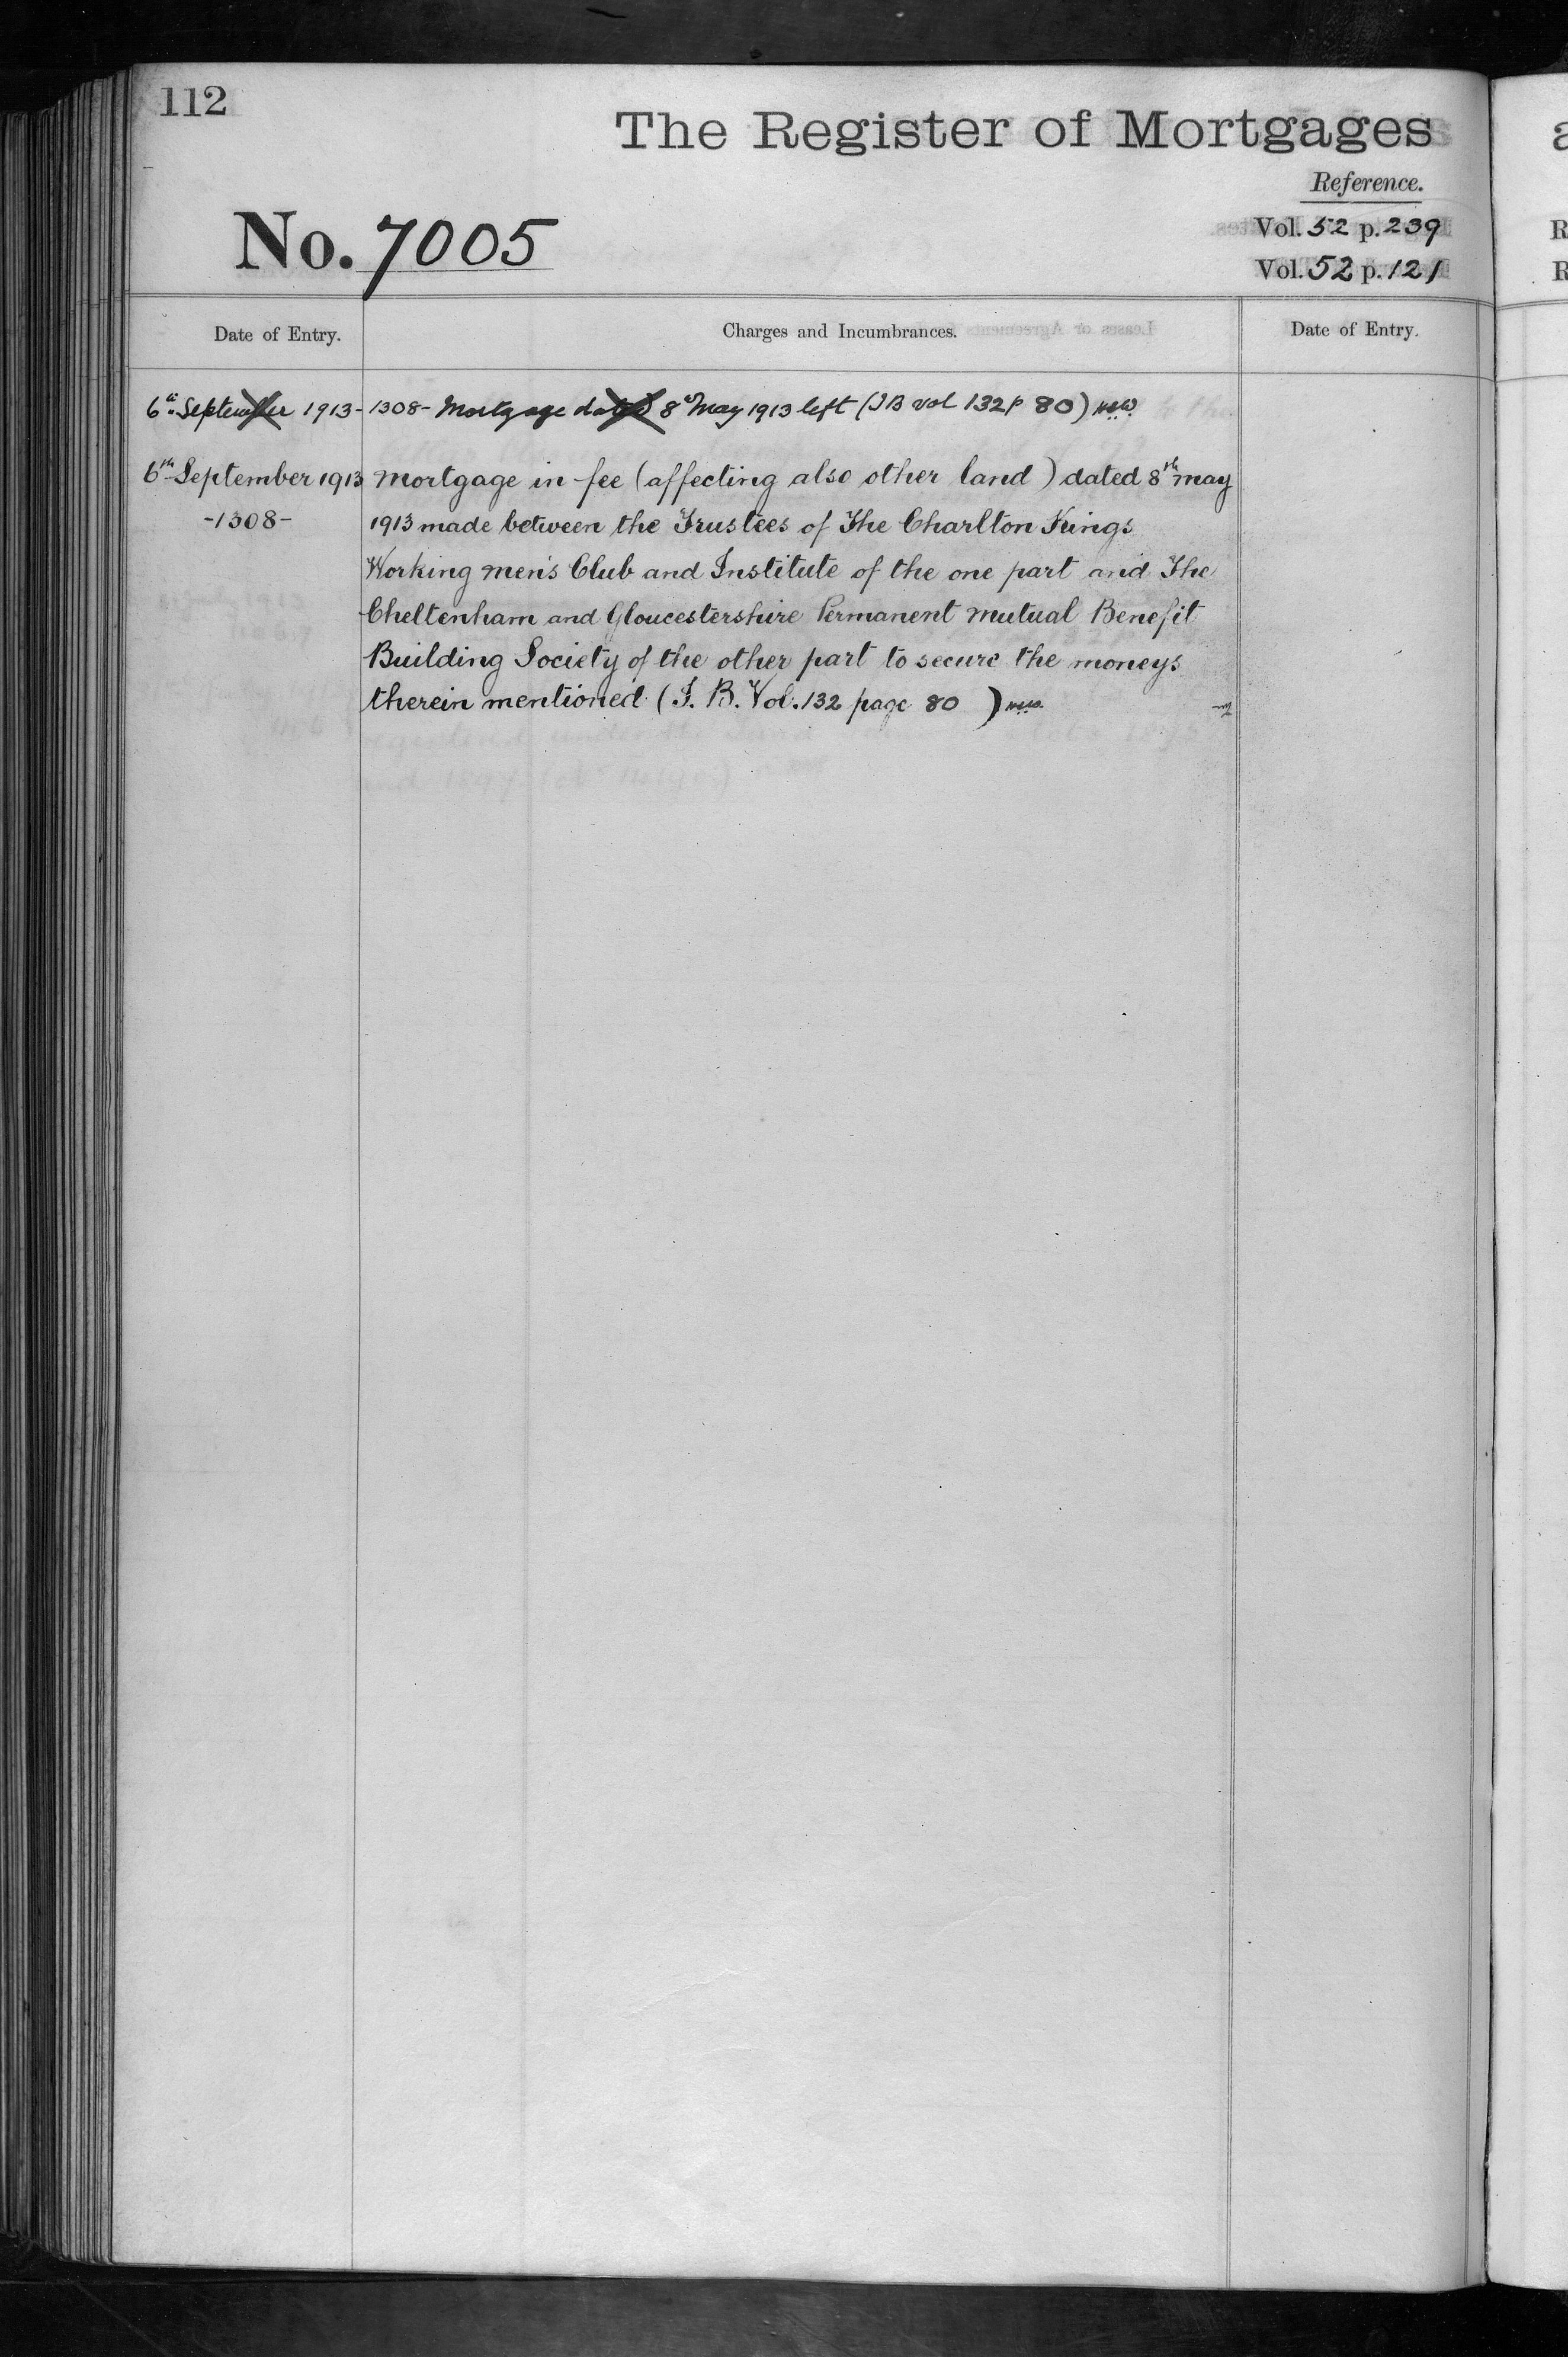 112
The Register of Mortgages
Reference.
No. 7005
Vol. 52 p. 239
Vol. 52 p. 121
Date of Entry.
Charges and Incumbrances.
Date of Entry.
6th September 1913 - 1308 - Mortgage dated 8th May 1913 left (I B vol 132 p 80)
6th September 1913 Mortgage in fee (affecting also other land) dated 8th May
-1308- 1913 made between the Trustees of The Charlton Kings
Working Men's Club and Institute of the one part and The
Cheltenham and Gloucestershire Permanent Mutual Benefit
Building Society of the other part to secure the moneys
therein mentioned (I. B. Vol. 132 page 80 )